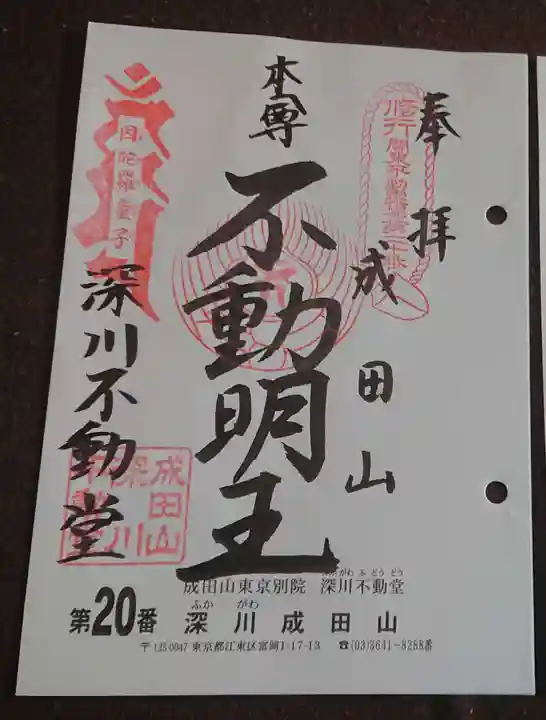 奉拝
成田山
本尊
不動明王
深川不動堂
成田山
深川
不動堂
成田山東京別院 深川不動堂
ふか がわ
第20番 深川成田山
〒135-0047 東京都江東区富岡1-17-13 ☎(03)3641-8288番